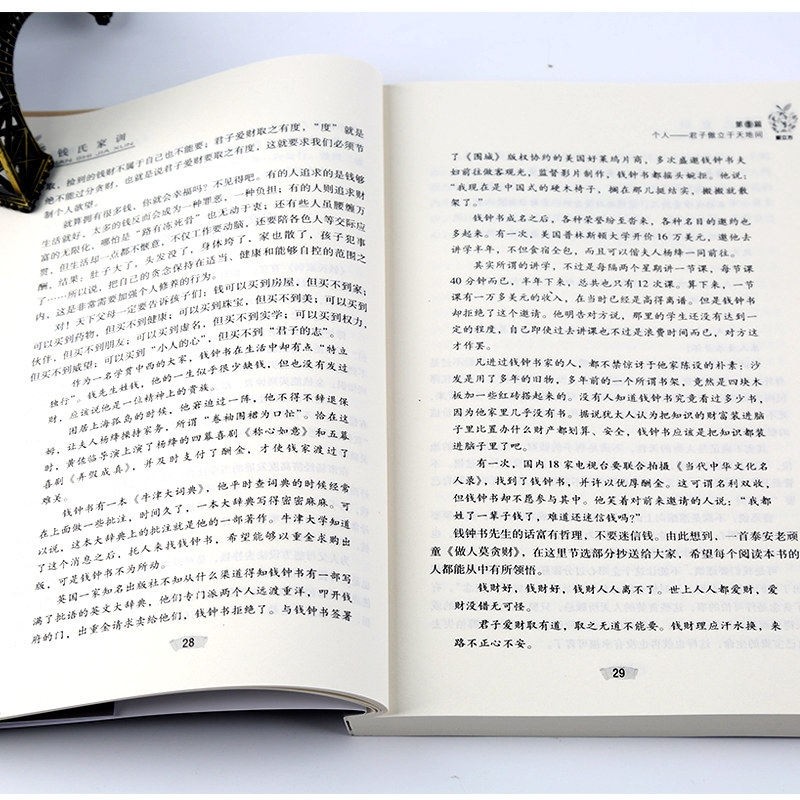 钱氏家训
QIAN SHI JIA XUN
取，捡到的钱财不属于自己也不能要；君子爱财取之有度，“度”就是
他不能过分贪财，也就是说君子爱财要取之有度，这就要求我们必须节
制个人欲望。
就算拥有很多钱，你就会幸福吗？不见得吧。有的人追求的是钱够
生活就好，太多的钱反而会成为一种罪恶，一种负担；有的人则追求财
富的无限化，哪怕是“路有冻死骨”也无动于衷；还有些人虽腰缠万
贯，但生活却一点都不惬意，不仅工作要动脑，还要陪各色人等交际应
酬，结果：肚子大了，头发没了，身体垮了，家也散了，孩子犯事
了……所以说，把自己的贪念保持在适当、健康和能够自控的范围之
内，这是非常需要加强个人修养的行为。
对！天下父母一定要告诉孩们：钱可以买到房屋，但买不到家；
可以买到药物，但买不到健康；可以买到珠宝，但买不到美；可以买到
伙伴，但买不到朋友；可以买到虚名，但买不到实学；可以买到权力，
但买不到威望；可以买到“小人的心”，但买不到“君子的志”。
作为一名学贯中西的大家，钱钟书在生活中却有点“特立
独行”。钱先生姓钱，他的一生似乎很少缺钱，但也没有发过
财，应该说他是一位精神上的贵族。
困居上海孤岛的时候，他窘迫过一阵，他不得不辞退保
姆，让夫人杨绛操持家务，所谓“卷袖围裙为口忙”。恰在这
时，黄佐临导演上演了杨绛的四幕喜剧《称心如意》和五幕
喜剧《弄假成真》，并及时支付了酬金，才使钱家渡过了
难关。
钱钟书有一本《牛津大词典》，他平时查词典的时候经常
在上面做一些批注，时间久了，一本大辞典写得密密麻麻。可
以说，这本大辞典上的批注就是他的一部著作。牛津大学知道
了这个消息之后，托人来找钱钟书，希望能够以重金求购出
版，可是钱钟书不为所动。
英国一家知名出版社不知从什么渠道得知钱钟书有一部写
满了批语的英文大辞典，他们专门派两个人远渡重洋，叩开钱
府的门，出重金请求卖给他们，钱钟书拒绝了。与钱钟书签署
28
第1篇
个人——君子傲立于天地间
了《围城》版权协约的美国好莱坞片商，多次盛邀钱钟书夫
妇前往做客观光，监督影片制作，钱钟书都摇头婉拒。他说：
“我现在是中国式的硬木椅子，搁在那儿挺结实，搬搬就散
架了。”
钱钟书成名之后，各种荣誉纷至沓来，各种名目的邀约也
多起来。有一次，美国普林斯顿大学开价16万美元，邀他去
讲学半年，不但食宿全包，而且可以偕夫人杨绛一同前往。
其实所谓的讲学，不过是每隔两个星期讲一节课，每节课
40分钟而已，半年下来，总共也只有12次课。算下来，一节
课有一万多美元的收入，在当时已经是高得离谱。但是钱钟书
却拒绝了这个邀请。他明告对方说，那里的学生还没有达到一
定的程度，自己即使过去讲课也不过是浪费时间而已，对方这
才作罢。
凡进过钱钟书家的人，都不禁惊讶于他家陈设的朴素：沙
发是用了多年的旧物，多年前的一个所谓书架，竟然是四块木
板加一些红砖搭起来的。没有人知道钱钟书究竟看过多少书，
因为他家里几乎没有书。据说犹太人认为把知识的财富装进脑
子里比置办什么财产都划算、安全，钱钟书应该是把知识都装
进脑子里了吧。
有一次，国内18家电视台要联合拍摄《当代中华文化名
人录》，找到了钱钟书，并许以优厚酬金。这可谓名利双收，
但钱钟书却不愿参与其中。他笑着对前来邀请的人说：“我都
姓了一辈子钱了，难道还迷信钱吗？”
钱钟书先生的话富有哲理，不要迷信钱。由此想到，一首泰安老顽
童《做人莫贪财》，在这里节选部分抄送给大家，希望每个阅读本书的
人都能从中有所领悟。
钱财好，钱财好，钱财人人离不了。世上人人都爱财，爱
财没错无可怪。
君子爱财取有道，取之无道不能要。钱财理应汗水换，来
路不正心不安。
29